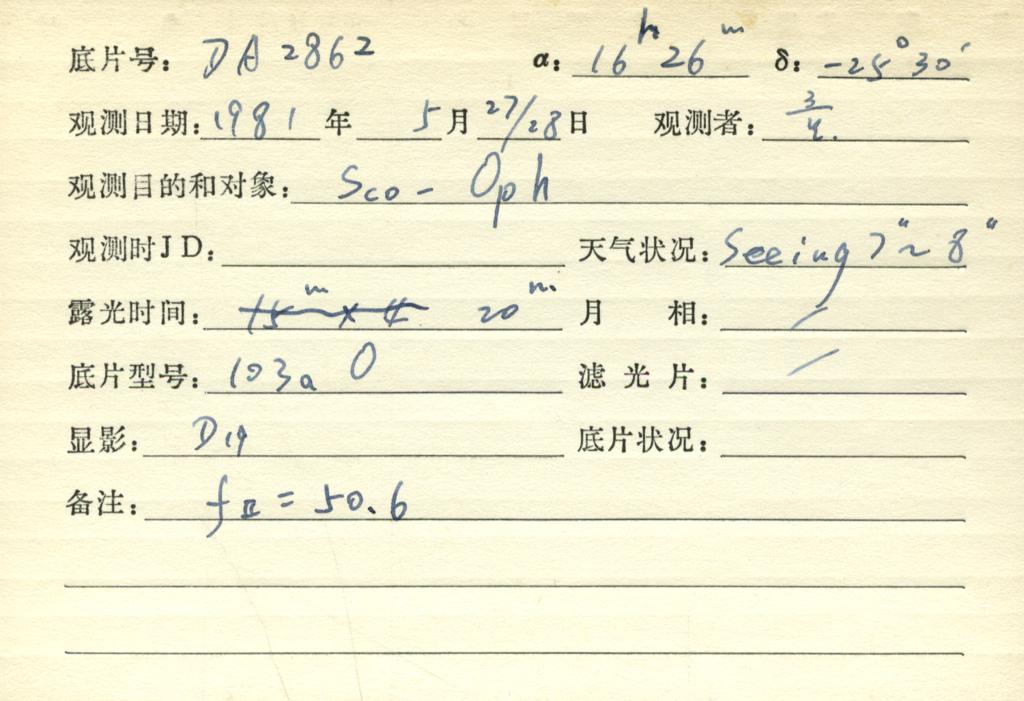 底片号: DA2862 α: 16h 26m δ: -25° 30′
观测日期: 1981 年 5 月 27/28 日 观测者:
观测目的和对象: Sco - Oph
观测时JD: 天气状况: Seeing 7″~8″
露光时间: 15m × 4 20m 月 相: /
底片型号: 103a O 滤光片: /
显影: D19 底片状况:
备注: fⅡ = 50.6